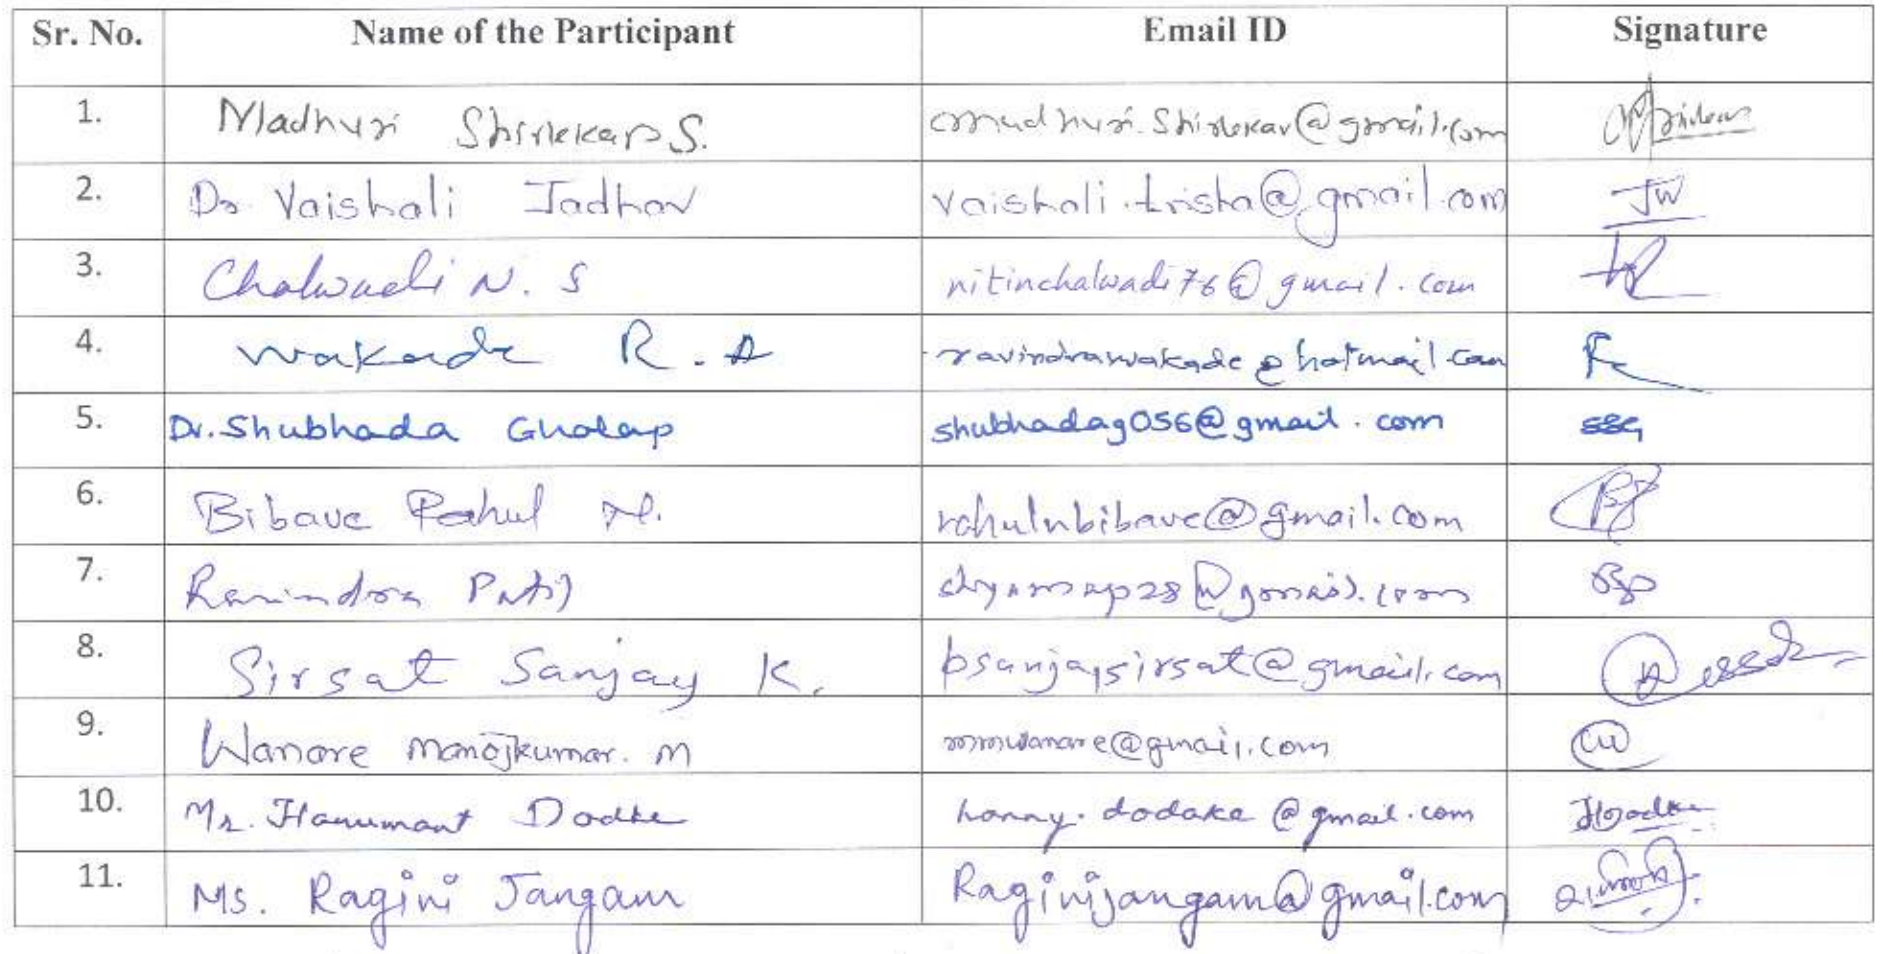 Sr. No. Name of the Participant Email ID Signature
1. Madhuri Shirlekar S. madhuri.shirlekar@gmail.com
2. Dr. Vaishali Jadhav vaishali.trisha@gmail.com
3. Chalwadi N. S nitinchalwadi76@gmail.com JW
4. Wakade R. A ravindrawakade@hotmail.com
5. Dr. Shubhada Gholap shubhadag056@gmail.com SSG
6. Bibave Rahul N. rahulnbibave@gmail.com
7. Ravindra Patil
8. Sirsat Sanjay K. bsanjaysirsat@gmail.com
9. Wanare Manojkumar. M mmwanare@gmail.com
10. Mr. Hanumant Dodke hanny.dodake@gmail.com HDodke
11. Ms. Ragini Jangam Raginijangam@gmail.com